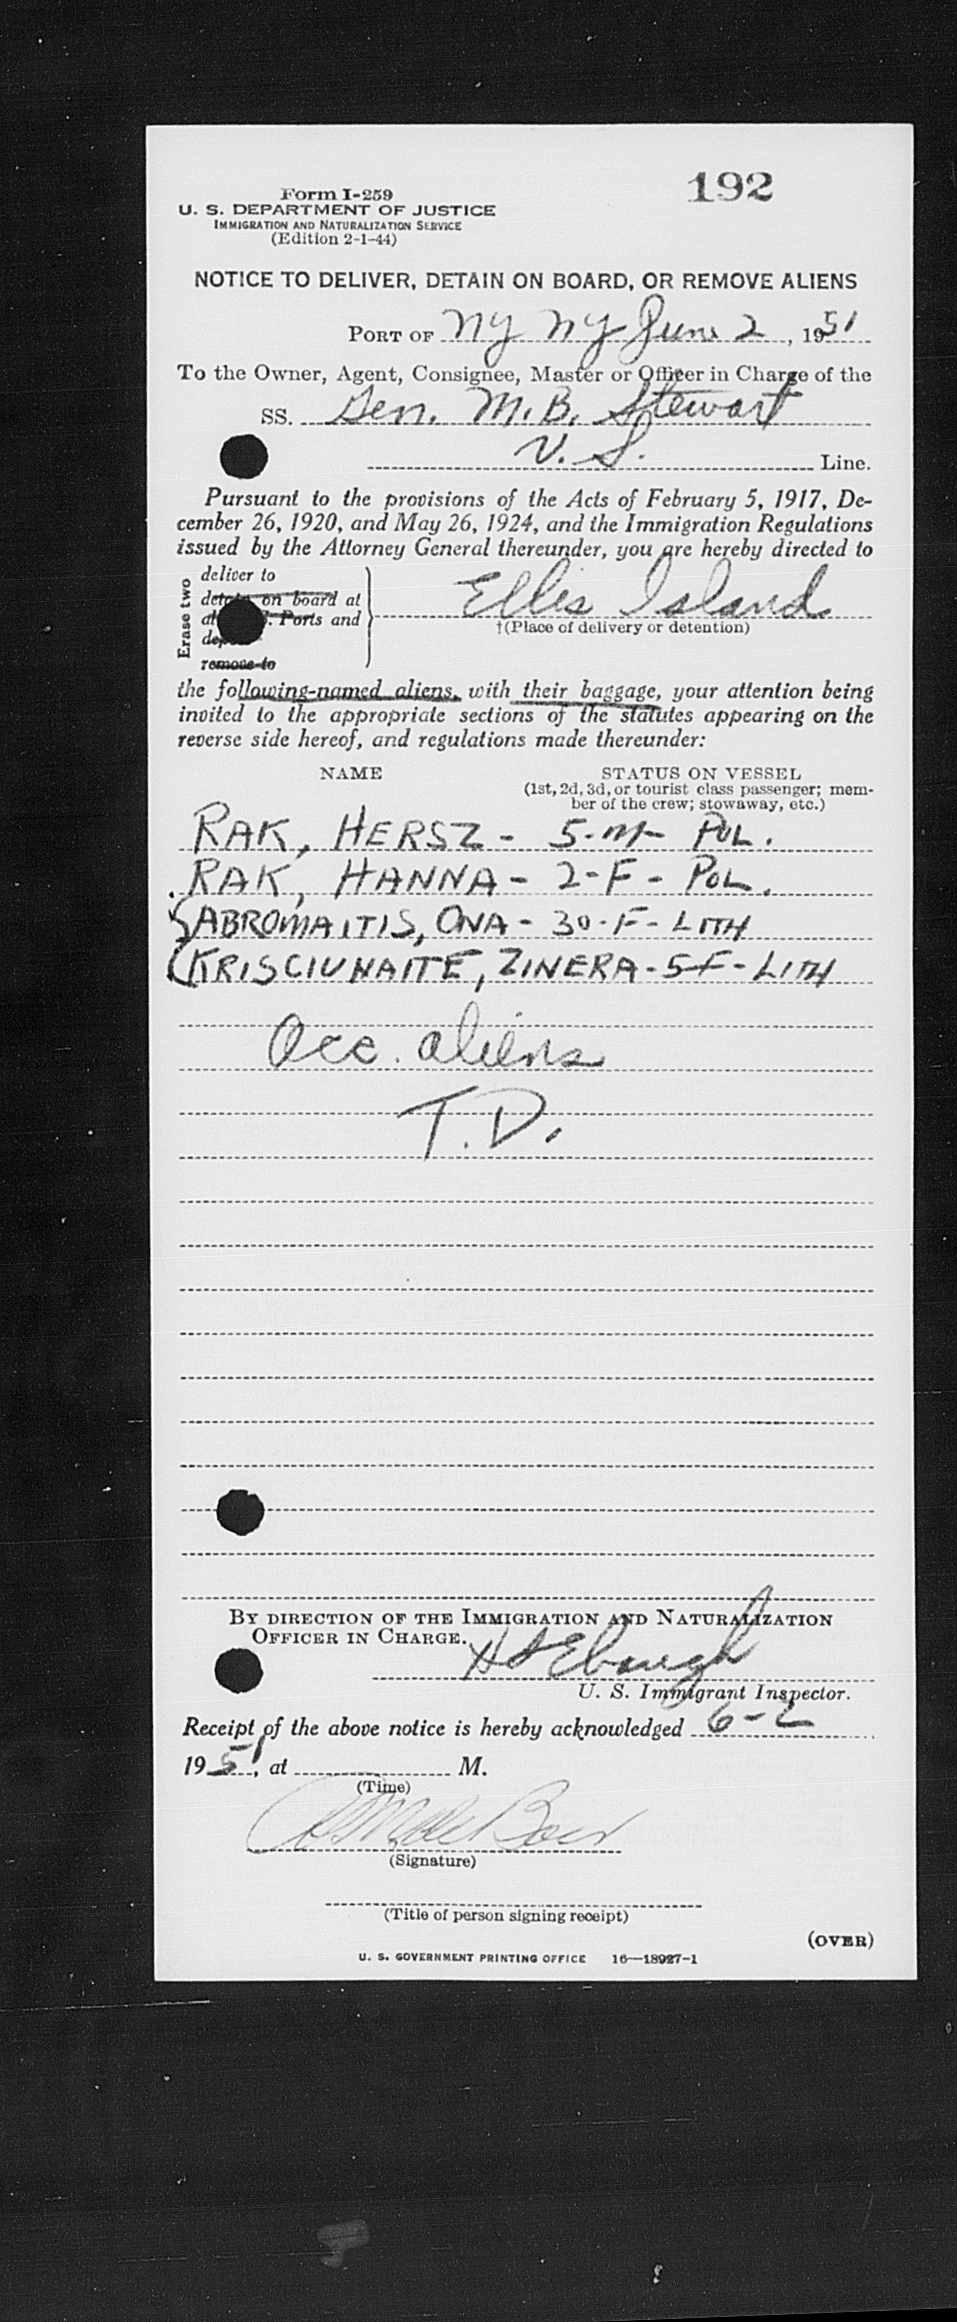 192
Form I-259
U. S. DEPARTMENT OF JUSTICE
IMMIGRATION AND NATURALIZATION SERVICE
(Edition 2-1-44)
NOTICE TO DELIVER, DETAIN ON BOARD, OR REMOVE ALIENS
PORT OF NY NY June 2, 1951
To the Owner, Agent, Consignee, Master or Officer in Charge of the
SS. Gen. M. B. Stewart
U. S. Line.
Pursuant to the provisions of the Acts of February 5, 1917, De-
cember 26, 1920, and May 26, 1924, and the Immigration Regulations
issued by the Attorney General thereunder, you are hereby directed to
Erase two
deliver to
detain on board at
Ports and
remove to
Ellis Island
†(Place of delivery or detention)
the following-named aliens, with their baggage, your attention being
invited to the appropriate sections of the statutes appearing on the
reverse side hereof, and regulations made thereunder:
NAME STATUS ON VESSEL
(1st, 2d, 3d, or tourist class passenger; mem-
ber of the crew; stowaway, etc.)
RAK, HERSZ - 5-M- POL.
RAK, HANNA - 2-F - POL.
ABROMAITIS, ONA - 30-F- LITH
KRISCIUNAITE, ZINERA - 5-F - LITH
Acc. aliens
T. D.
BY DIRECTION OF THE IMMIGRATION AND NATURALIZATION
OFFICER IN CHARGE.
U. S. Immigrant Inspector.
Receipt of the above notice is hereby acknowledged 6-2
1951, at M.
(Time)
(Signature)
(Title of person signing receipt)
(OVER)
U. S. GOVERNMENT PRINTING OFFICE 16—18927-1